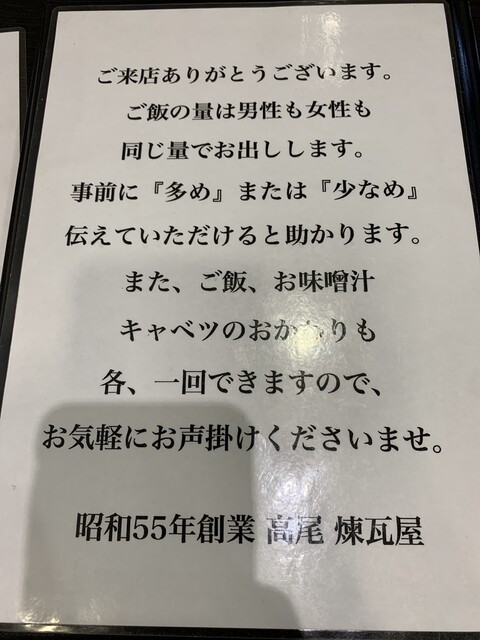 ご来店ありがとうございます。
ご飯の量は男性も女性も
同じ量でお出しします。
事前に『多め』または『少なめ』
伝えていただけると助かります。
また、ご飯、お味噌汁
キャベツのおかわりも
各、一回できますので、
お気軽にお声掛けくださいませ。
昭和55年創業 高尾 煉瓦屋